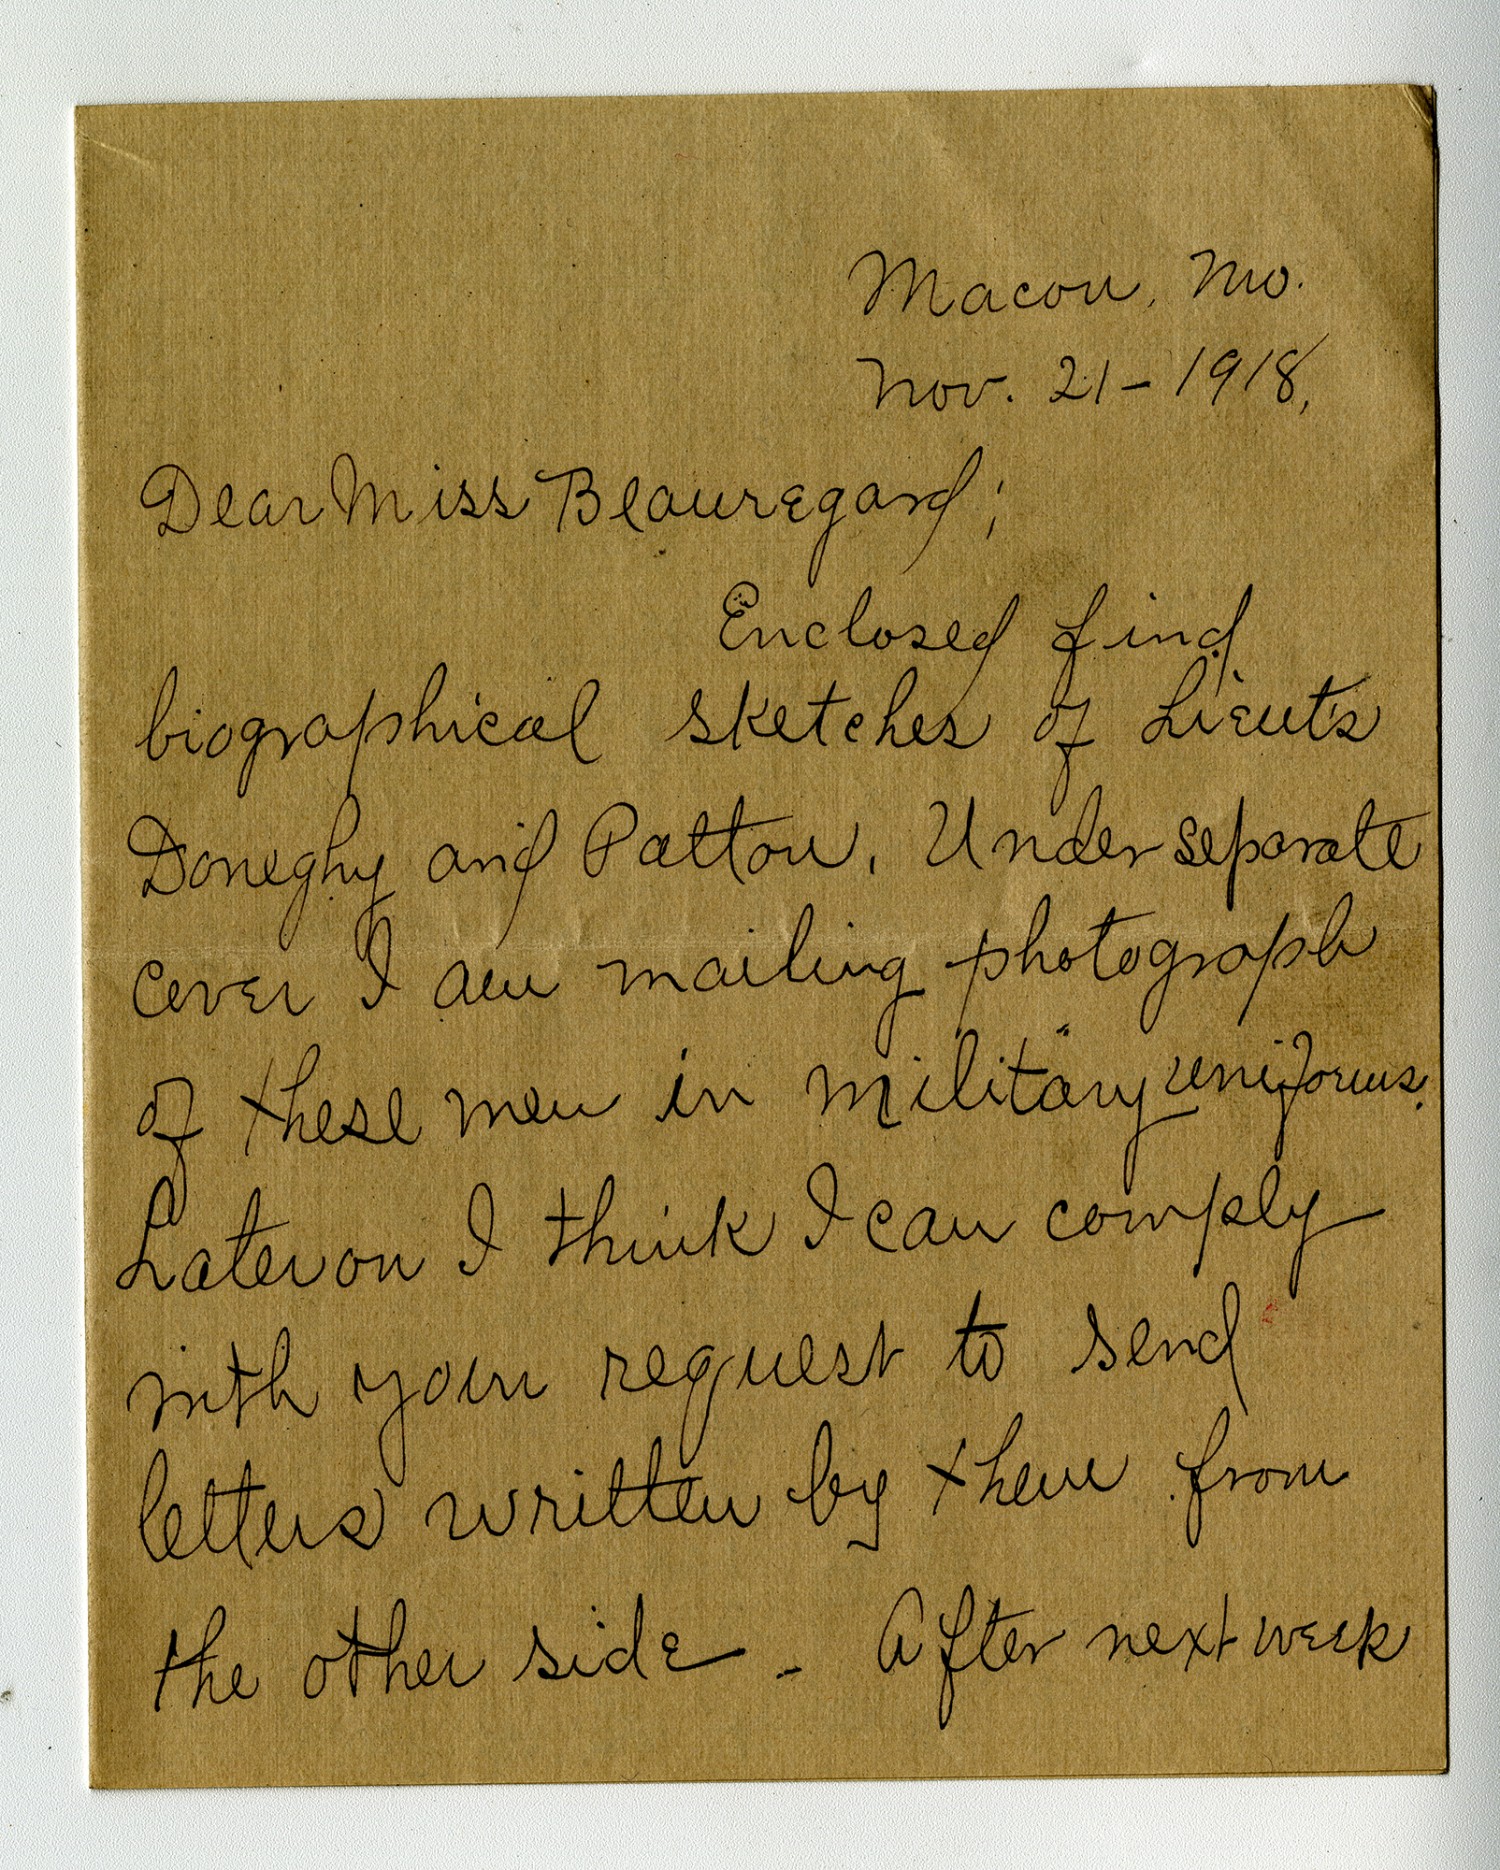 Macon, Mo.
Nov. 21-1918,
Dear Miss Beauregard;
Enclosed find
biographical sketches of Lieut's
Doneghy and Patton. Under separate
cover I am mailing photograph
of these men in military uniforms.
Later on I think I can comply
with your request to send
letters written by them from
the other side - After next week